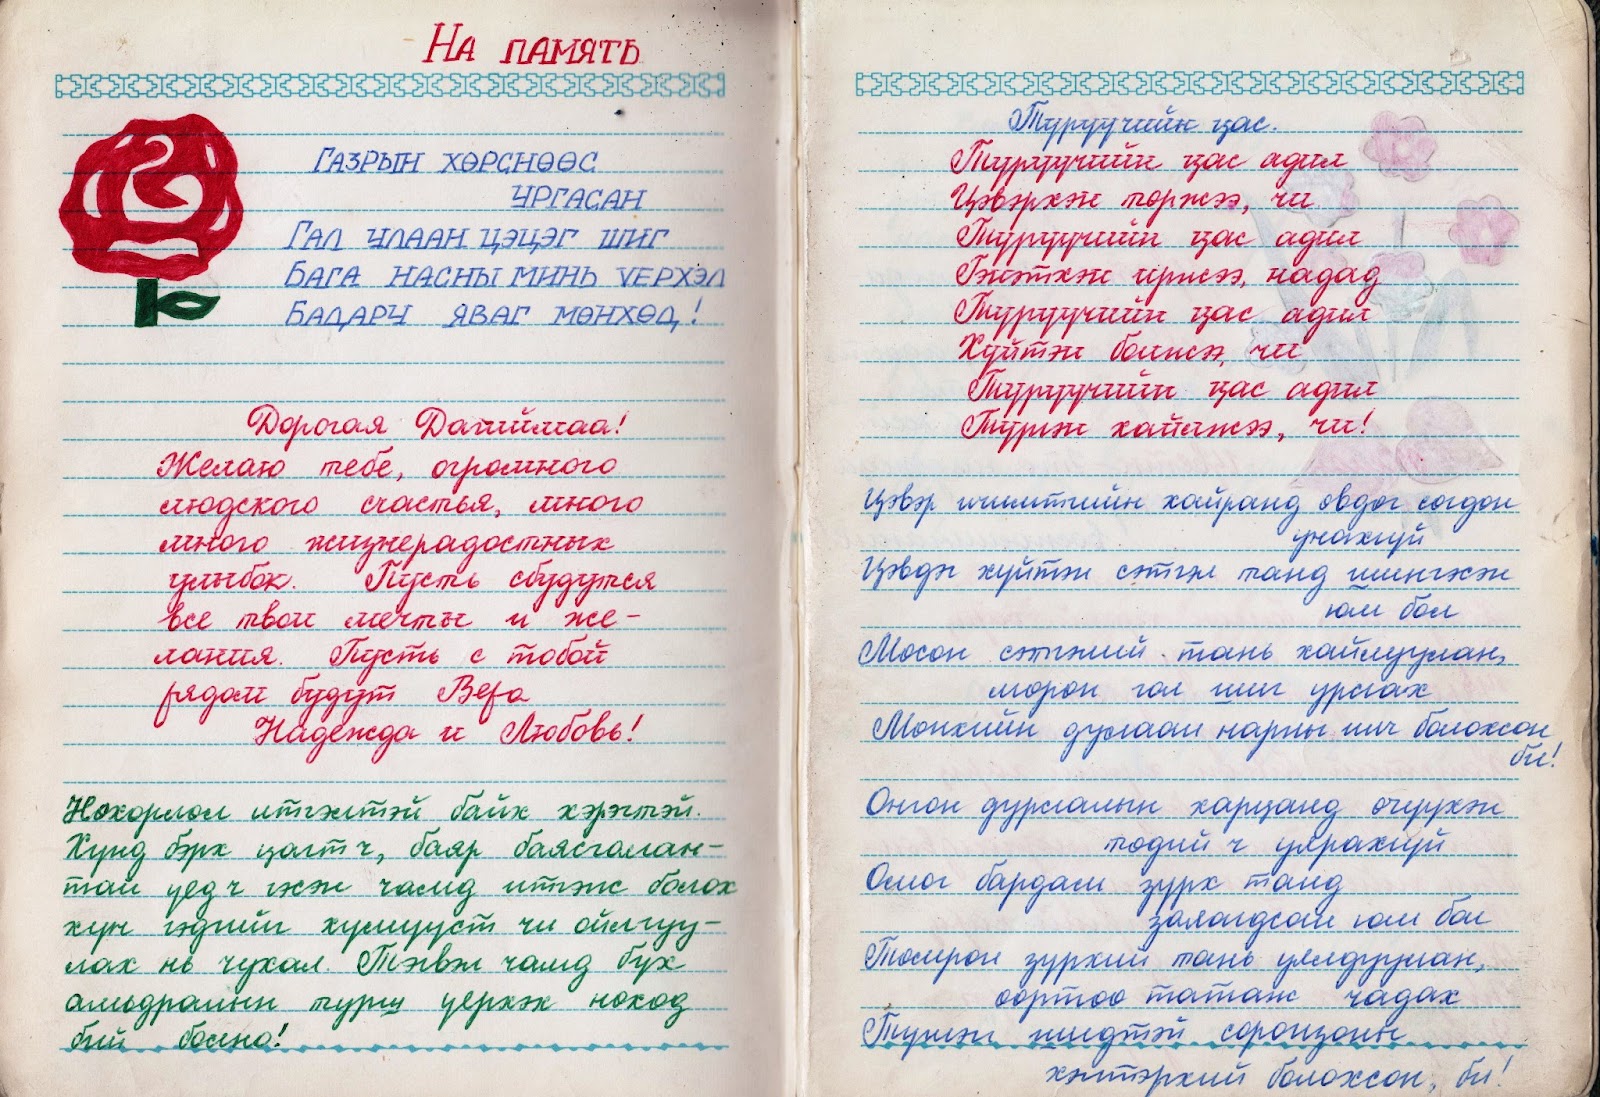 На память
Газрын хөрснөөс
ургасан
Гал улаан цэцэг шиг
Бага насны минь үерхэл
Бадарч яваг мөнхөд!
Дорогая Дашиймаа!
Желаю тебе, огромного
людского счастья, много
много жизнерадостных
улыбок. Пусть сбудутся
все твои мечты и же-
лания. Пусть с тобой
рядом будут Вера
Надежда и Любовь!
Нөхөрлөл итгэлтэй байх хэрэгтэй.
Хүнд бэрх цагт ч, баяр баясгалан-
тай үед ч гэсэн чамд итгэж болох
хүн гэдгийг хүмүүст чи ойлгуу-
лах нь чухал. Тэгвэл чамд бүх
амьдралын турш үерхэх нөхөд
бий болно!
Түрүүчийн цас.
Түрүүчийн цас адил
Цэвэрхэн төржээ, чи
Түрүүчийн цас адил
Гэнэтхэн иржээ, надад
Түрүүчийн цас адил
Хүйтэн болжээ, чи
Түрүүчийн цас адил
Түргэн хайлжээ, чи!
Цэвэр ичимтгийн хайранд өвдөг сөгдөн
унахгүй
Цэвдэг хүйтэн сэтгэл танд шингэсэн
юм бол
Мөсөн сэтгэлий тань хайлуулан,
мөрөн гол шиг урсгах
Мөнхийн дулаан нарны илч болохсон
би!
Онгон дурлалын харцанд өчүүхэн
төдий ч уярахгүй
Омог бардам зүрх танд
заяагдсан юм бол
Төмрөн зүрхий тань уялдуулан,
өөртөө татаж чадах
Түмэн шидтэй соронзоны
хэлтэрхий болохсон, би!